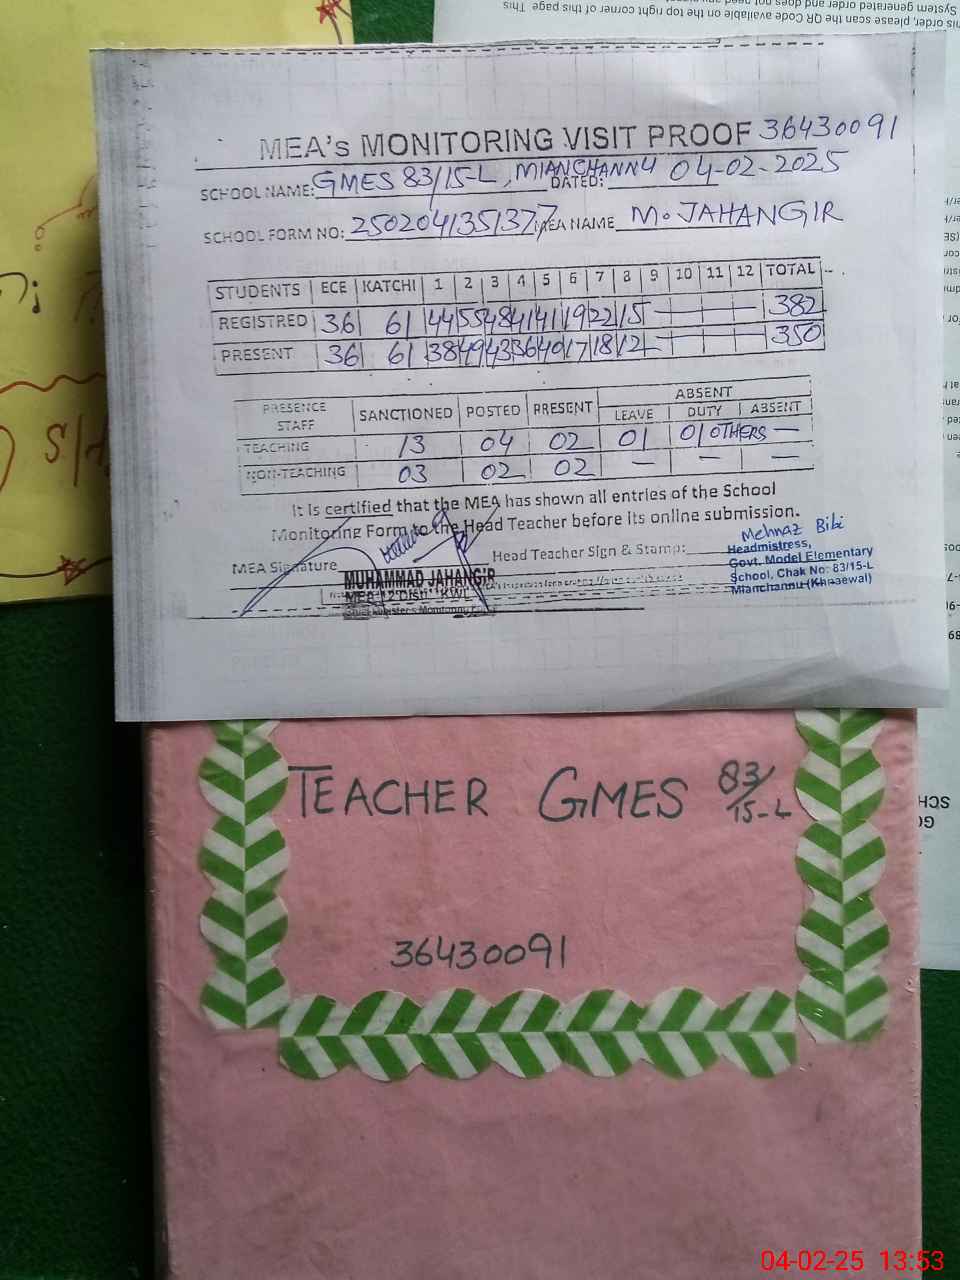 System generated order and does not need any
this order, please scan the QR Code available on the top right corner of this page. This
MEA's MONITORING VISIT PROOF 36430091
SCHOOL NAME: GMES 83/15-L, MIANCHANNU DATED: 04-02-2025
SCHOOL FORM NO: 250204135137 MEA NAME M. JAHANGIR
STUDENTS ECE KATCHI 1 2 3 4 5 6 7 8 9 10 11 12 TOTAL
REGISTRED 36 61 44 55 48 41 41 19 22 15 — — — — 382
PRESENT 36 61 38 49 43 36 40 17 18 12 — — — — 350
PRESENCE STAFF SANCTIONED POSTED PRESENT ABSENT
LEAVE DUTY ABSENT
TEACHING 13 04 02 01 01 OTHERS —
NON-TEACHING 03 02 02 — — —
It is certified that the MEA has shown all entries of the School
Monitoring Form to the Head Teacher before its online submission.
MEA Signature Head Teacher Sign & Stamp:
Mehnaz Bibi
Headmistress,
Govt. Model Elementary
School, Chak No: 83/15-L
Mianchannu (Khanewal)
MUHAMMAD JAHANGIR
MEA-12 Distt: KWL
TEACHER GMES 83/15-L
36430091
04-02-25 13:53